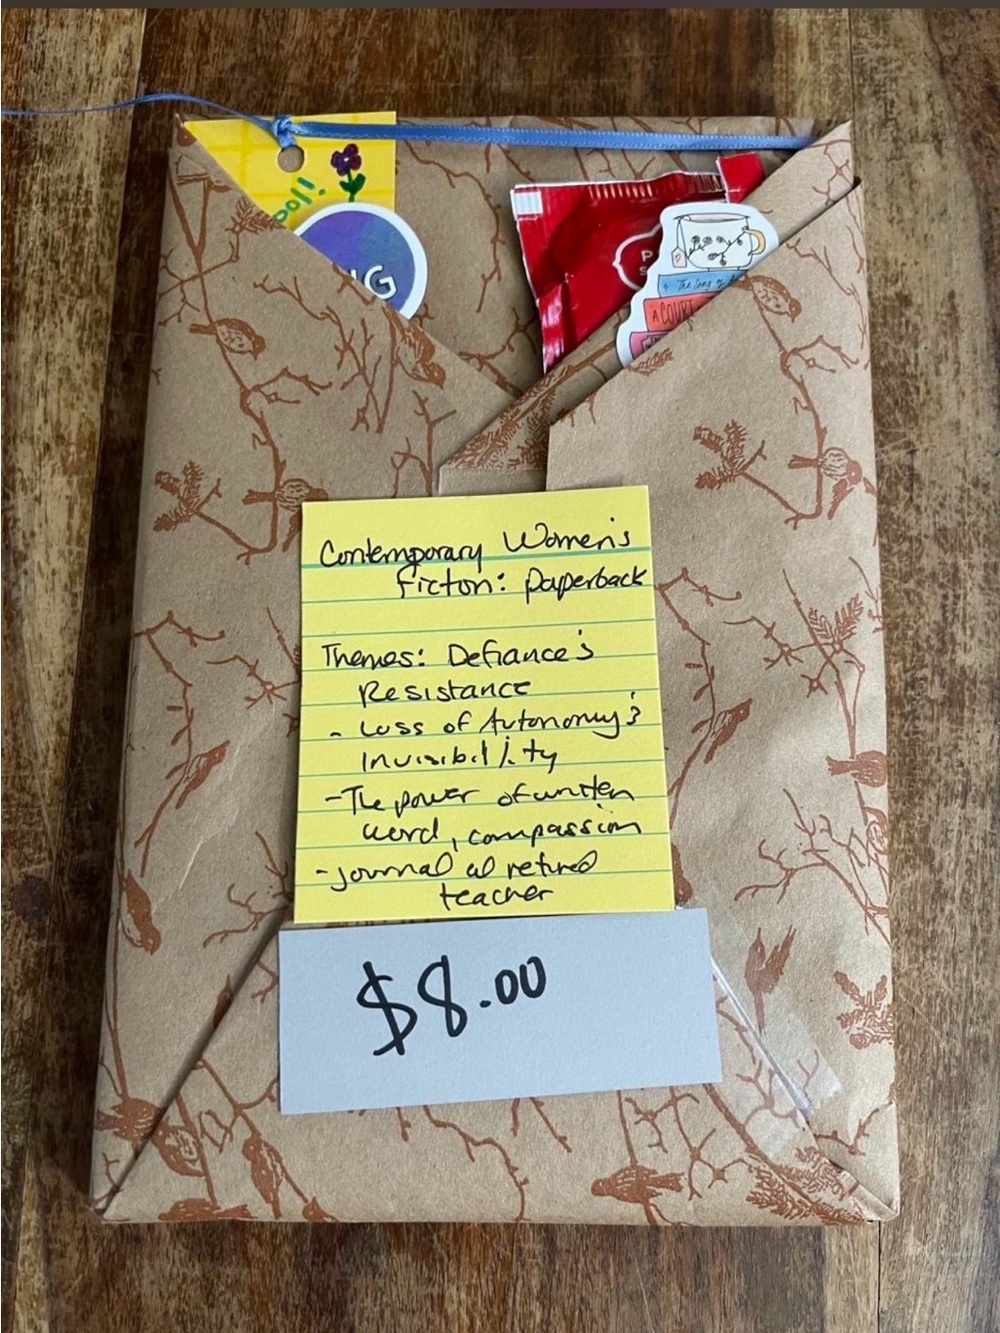 The Song of
A COURT
Contemporary Women's
Ficton: paperback
Themes: Defiance &
Resistance
- Loss of Autonomy &
Invisibility
-The power of written
word, compassion
-journal of retired
teacher
$8.00